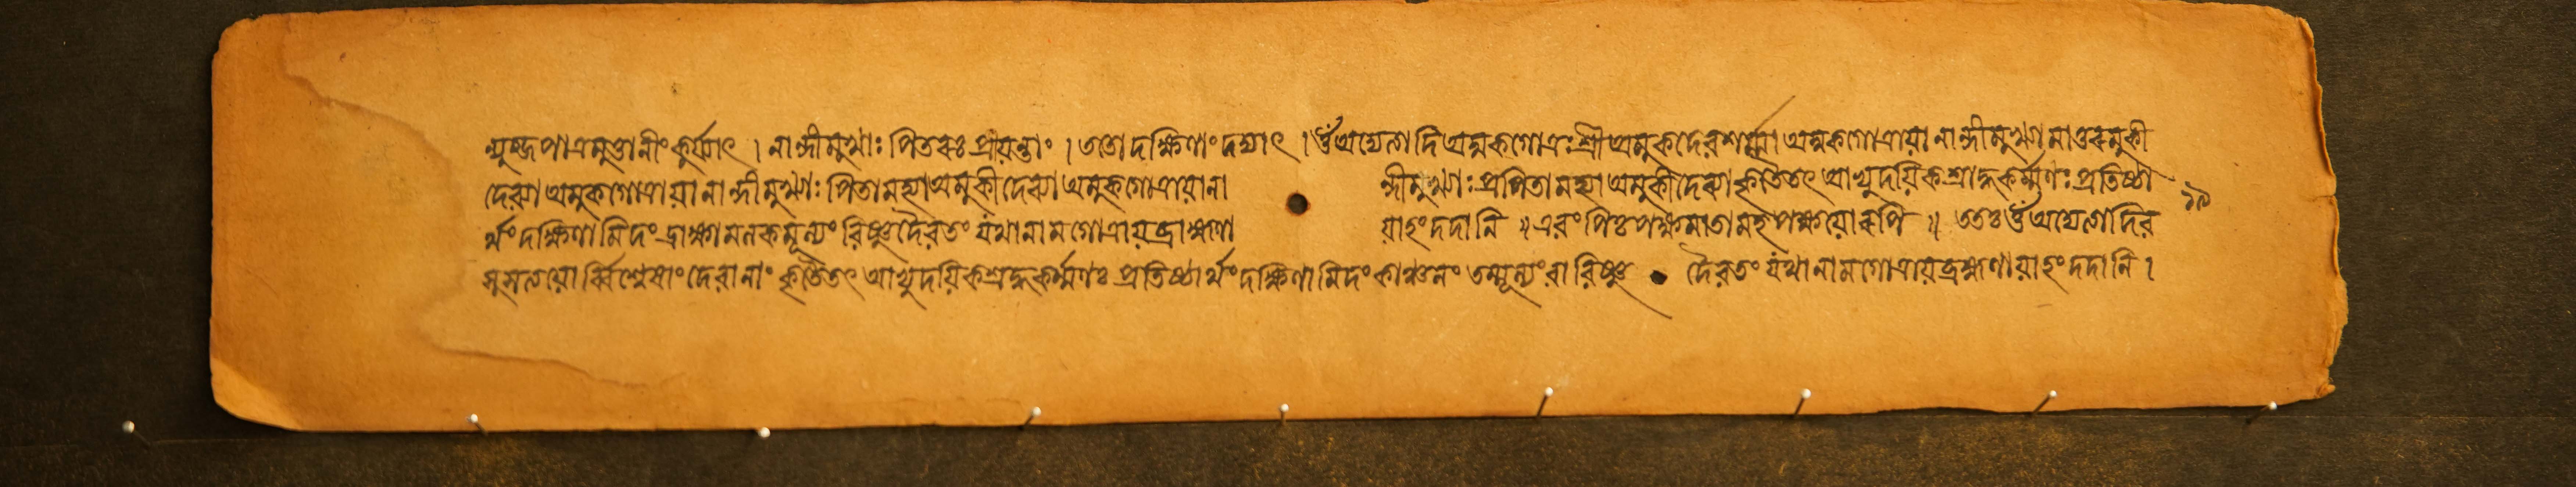 ন্যুব্জপাত্রমুত্তানীংকুর্য্যাৎ । নান্দীমুখাঃ পিতরঃ প্রীয়ন্তাং । ততো দক্ষিণাং দদ্যাৎ । ওঁঅদ্যেত্যাদি অমুকগোত্রঃ শ্রীঅমুকদেৱশর্ম্মা অমুকগোত্রায়া নান্দীমুখ্যা মাতুৰমুকী
দেৱ্যা অমুকগোত্রায়া নান্দীমুখ্যাঃ পিতামহ্যা অমুকীদেৱ্যা অমুকগোত্রায়ানা ন্দীমুখ্যাঃ প্রপিতামহ্যা অমুকীদেৱ্যা কৃতৈতৎ আভ্যুদয়িকশ্রাদ্ধকর্ম্মণঃ প্রতিষ্ঠা
র্থং দক্ষিণামিদং দ্রাক্ষামলকমূল্যং ৱিষ্ণুদৈৱতং যথানামগোত্রায়ব্রাহ্মণা য়াহং দদানি ॥ এৱং পিতৃপক্ষমাতামহপক্ষয়োৰপি ॥ ততঃ ওঁঅদ্যেত্যাদি ৱ
সুসত্যয়োর্ব্বিশ্বেষাং দেৱানাং কৃতৈতৎ আভ্যুদয়িকশ্রাদ্ধকর্ম্মণঃ প্রতিষ্ঠার্থং দক্ষিণামিদং কাঞ্চনং তন্মূল্যংৱা ৱিষ্ণু দৈৱতং যথানামগোত্রায়ব্রাহ্মণায়াহং দদানি ।